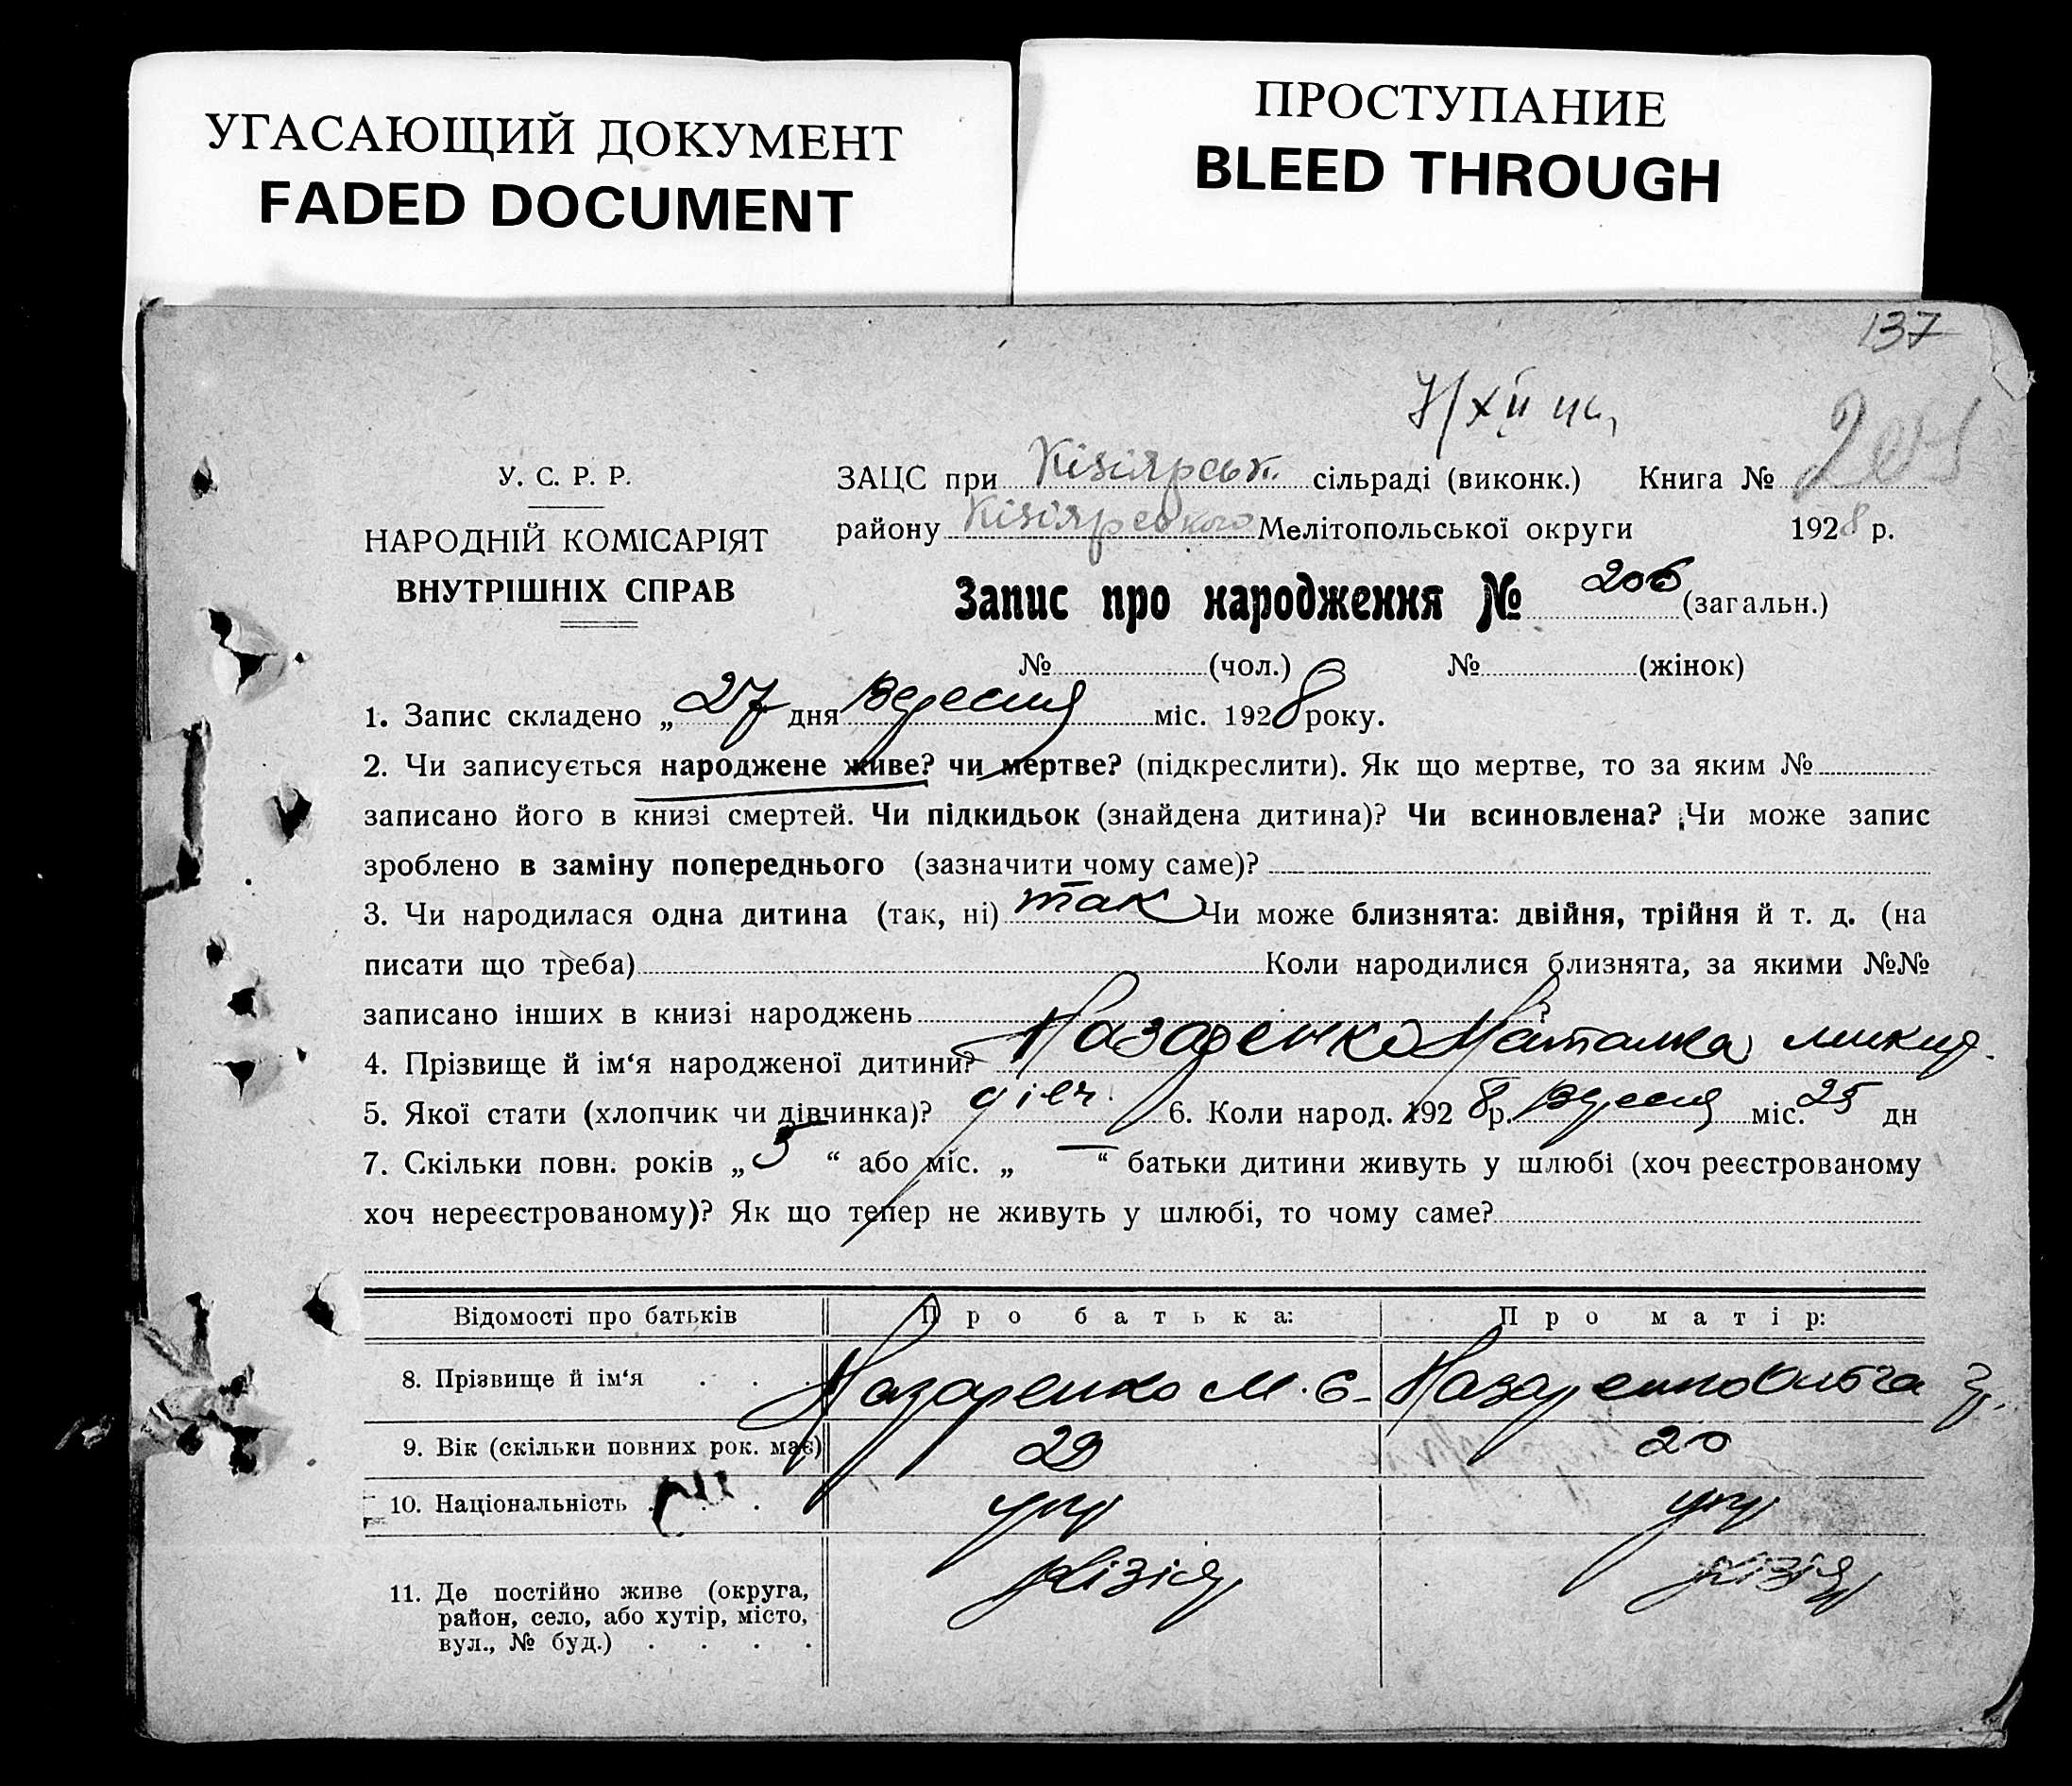 УГАСАЮЩИЙ ДОКУМЕНТ
FADED DOCUMENT
ПРОСТУПАНИЕ
BLEED THROUGH
137
У. С. Р. Р.
НАРОДНІЙ КОМІСАРІЯТ
ВНУТРІШНІХ СПРАВ
ЗАЦС при Кізіярськ. сільраді (виконк.) Книга №
району Кізіярського Мелітопольської округи 1928 р.
Запис про народження № 206 (загальн.)
№ (чол.) № (жінок)
1. Запис складено „ 27 дня Вересня міс. 1928 року.
2. Чи записується народжене живе? чи мертве? (підкреслити). Як що мертве, то за яким №
записано його в книзі смертей. Чи підкидьок (знайдена дитина)? Чи всиновлена? Чи може запис
зроблено в заміну попереднього (зазначити чому саме)?
3. Чи народилася одна дитина (так, ні) так Чи може близнята: двійня, трійня й т. д. (на
писати що треба) Коли народилися близнята, за якими №№
записано інших в книзі народжень ?
4. Прізвище й ім‘я народженої дитини? Назаренко Наталка микит.
5. Якої стати (хлопчик чи дівчинка)? дівч. 6. Коли народ. 1928 р. Вересня міс. 25 дн
7. Скільки повн. років „ 5 “ або міс. „ — “ батьки дитини живуть у шлюбі (хоч реєстрованому
хоч нереєстрованому)? Як що тепер не живуть у шлюбі, то чому саме?
Відомості про батьків Про батька: Про матір:
8. Прізвище й ім‘я . . . Назаренко М. Є. Назаренко Ольга
9. Вік (скільки повних рок. має) 20
10. Національність . . . укр укр
11. Де постійно живе (округа, Кізіяр Кізіяр
район, село, або хутір, місто,
вул., № буд.) . . . .